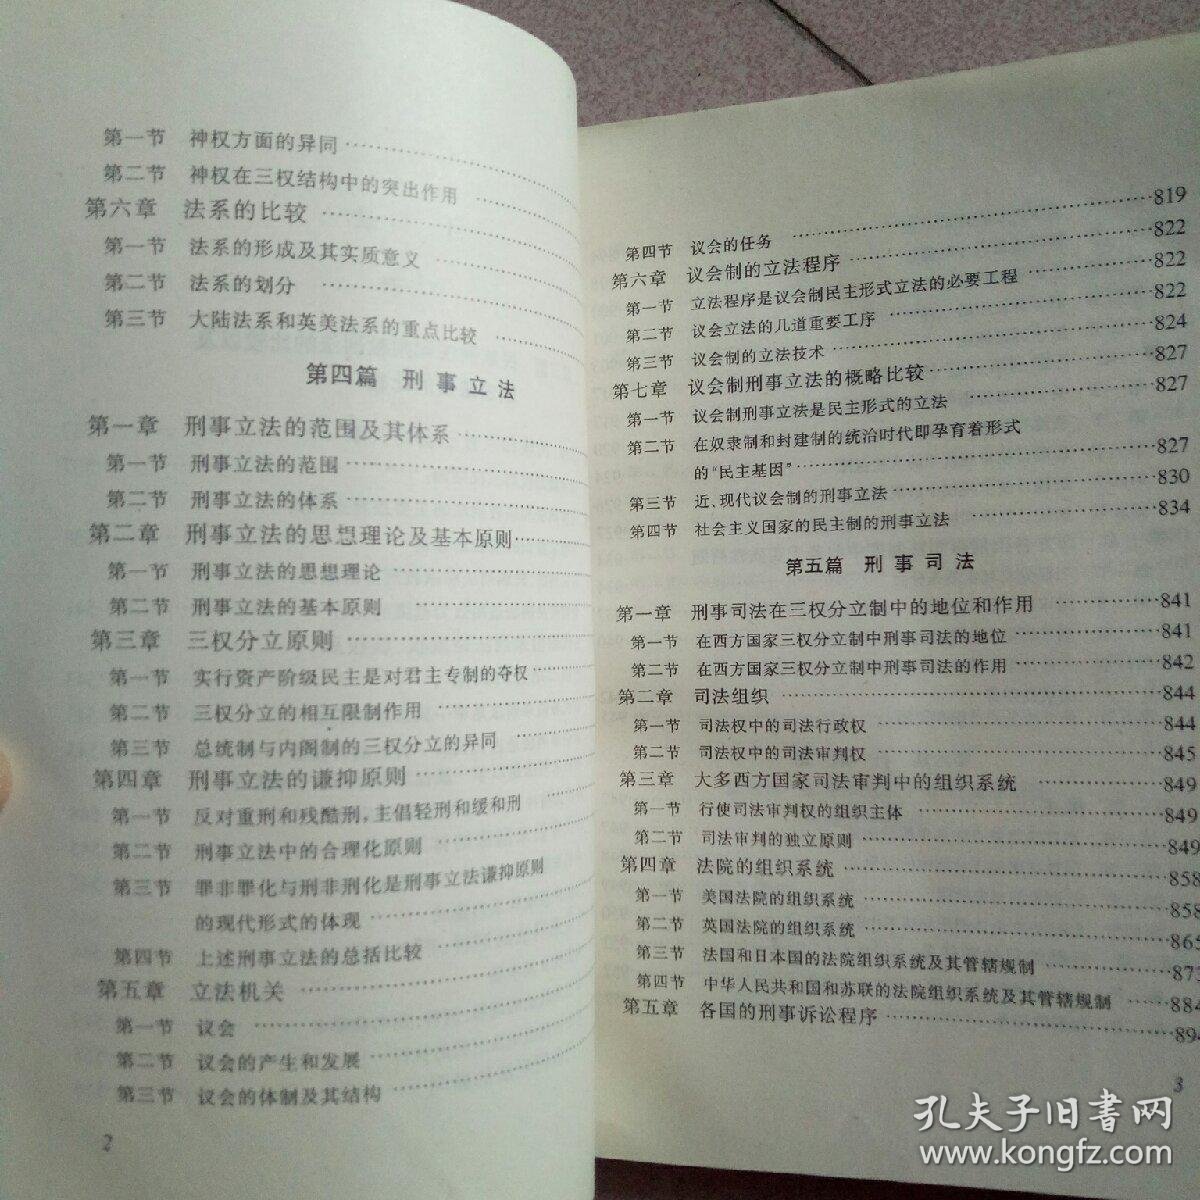 第一节 神权方面的异同
第二节 神权在三权结构中的突出作用
第六章 法系的比较
第一节 法系的形成及其实质意义
第二节 法系的划分
第三节 大陆法系和英美法系的重点比较
第四篇 刑事立法
第一章 刑事立法的范围及其体系
第一节 刑事立法的范围
第二节 刑事立法的体系
第二章 刑事立法的思想理论及基本原则
第一节 刑事立法的思想理论
第二节 刑事立法的基本原则
第三章 三权分立原则
第一节 实行资产阶级民主是对君主专制的夺权
第二节 三权分立的相互限制作用
第三节 总统制与内阁制的三权分立的异同
第四章 刑事立法的谦抑原则
第一节 反对重刑和残酷刑,主倡轻刑和缓和刑
第二节 刑事立法中的合理化原则
第三节 罪非罪化与刑非刑化是刑事立法谦抑原则
的现代形式的体现
第四节 上述刑事立法的总括比较
第五章 立法机关
第一节 议会
第二节 议会的产生和发展
第三节 议会的体制及其结构
2
第四节 议会的任务 819
第六章 议会制的立法程序 822
第一节 立法程序是议会制民主形式立法的必要工程 822
第二节 议会立法的几道重要工序 822
第三节 议会制的立法技术 824
第七章 议会制刑事立法的概略比较 827
第一节 议会制刑事立法是民主形式的立法 827
第二节 在奴隶制和封建制的统治时代即孕育着形式
的“民主基因” 827
第三节 近、现代议会制的刑事立法 830
第四节 社会主义国家的民主制的刑事立法 834
第五篇 刑事司法
第一章 刑事司法在三权分立制中的地位和作用 841
第一节 在西方国家三权分立制中刑事司法的地位 841
第二节 在西方国家三权分立制中刑事司法的作用 842
第二章 司法组织 844
第一节 司法权中的司法行政权 844
第二节 司法权中的司法审判权 845
第三章 大多西方国家司法审判中的组织系统 849
第一节 行使司法审判权的组织主体 849
第二节 司法审判的独立原则 849
第四章 法院的组织系统 858
第一节 美国法院的组织系统 858
第二节 英国法院的组织系统 865
第三节 法国和日本国的法院组织系统及其管辖规制 873
第四节 中华人民共和国和苏联的法院组织系统及其管辖规制 884
第五章 各国的刑事诉讼程序 894
3
孔夫子旧书网
www.kongfz.com